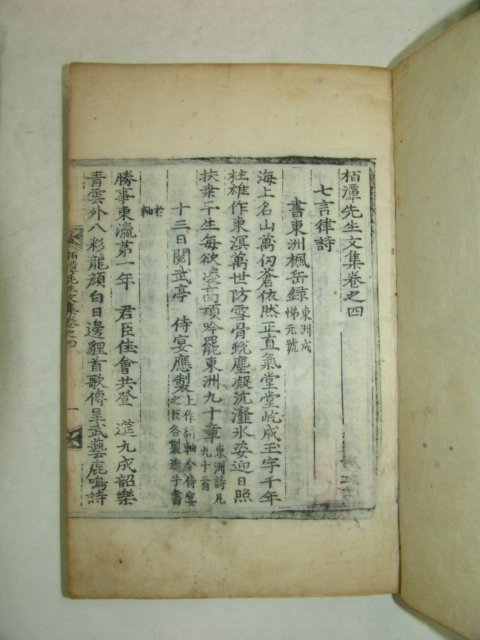 栢潭先生文集卷之四
七言律詩
書東洲楓岳錄 東洲成悌元號
海上名山萬仞蒼依然正直氣堂堂屹成玉宇千年
柱雄作東溟萬世防雪骨 塵凝沆瀣氷姿迎日照
扶桑平生每欲凌高頂吟罷東洲九十章 東洲詩凡九十首
十三日閱武亭 侍宴應製 上作絹軸令侍宴之臣各製進手書
於軸
勝事東瀛第一年 君臣佳會共登 筵九成韶樂
青雲外八彩龍顔白日邊貍首歌傳呈武藝鹿鳴詩
栢潭先生文集卷之四 一